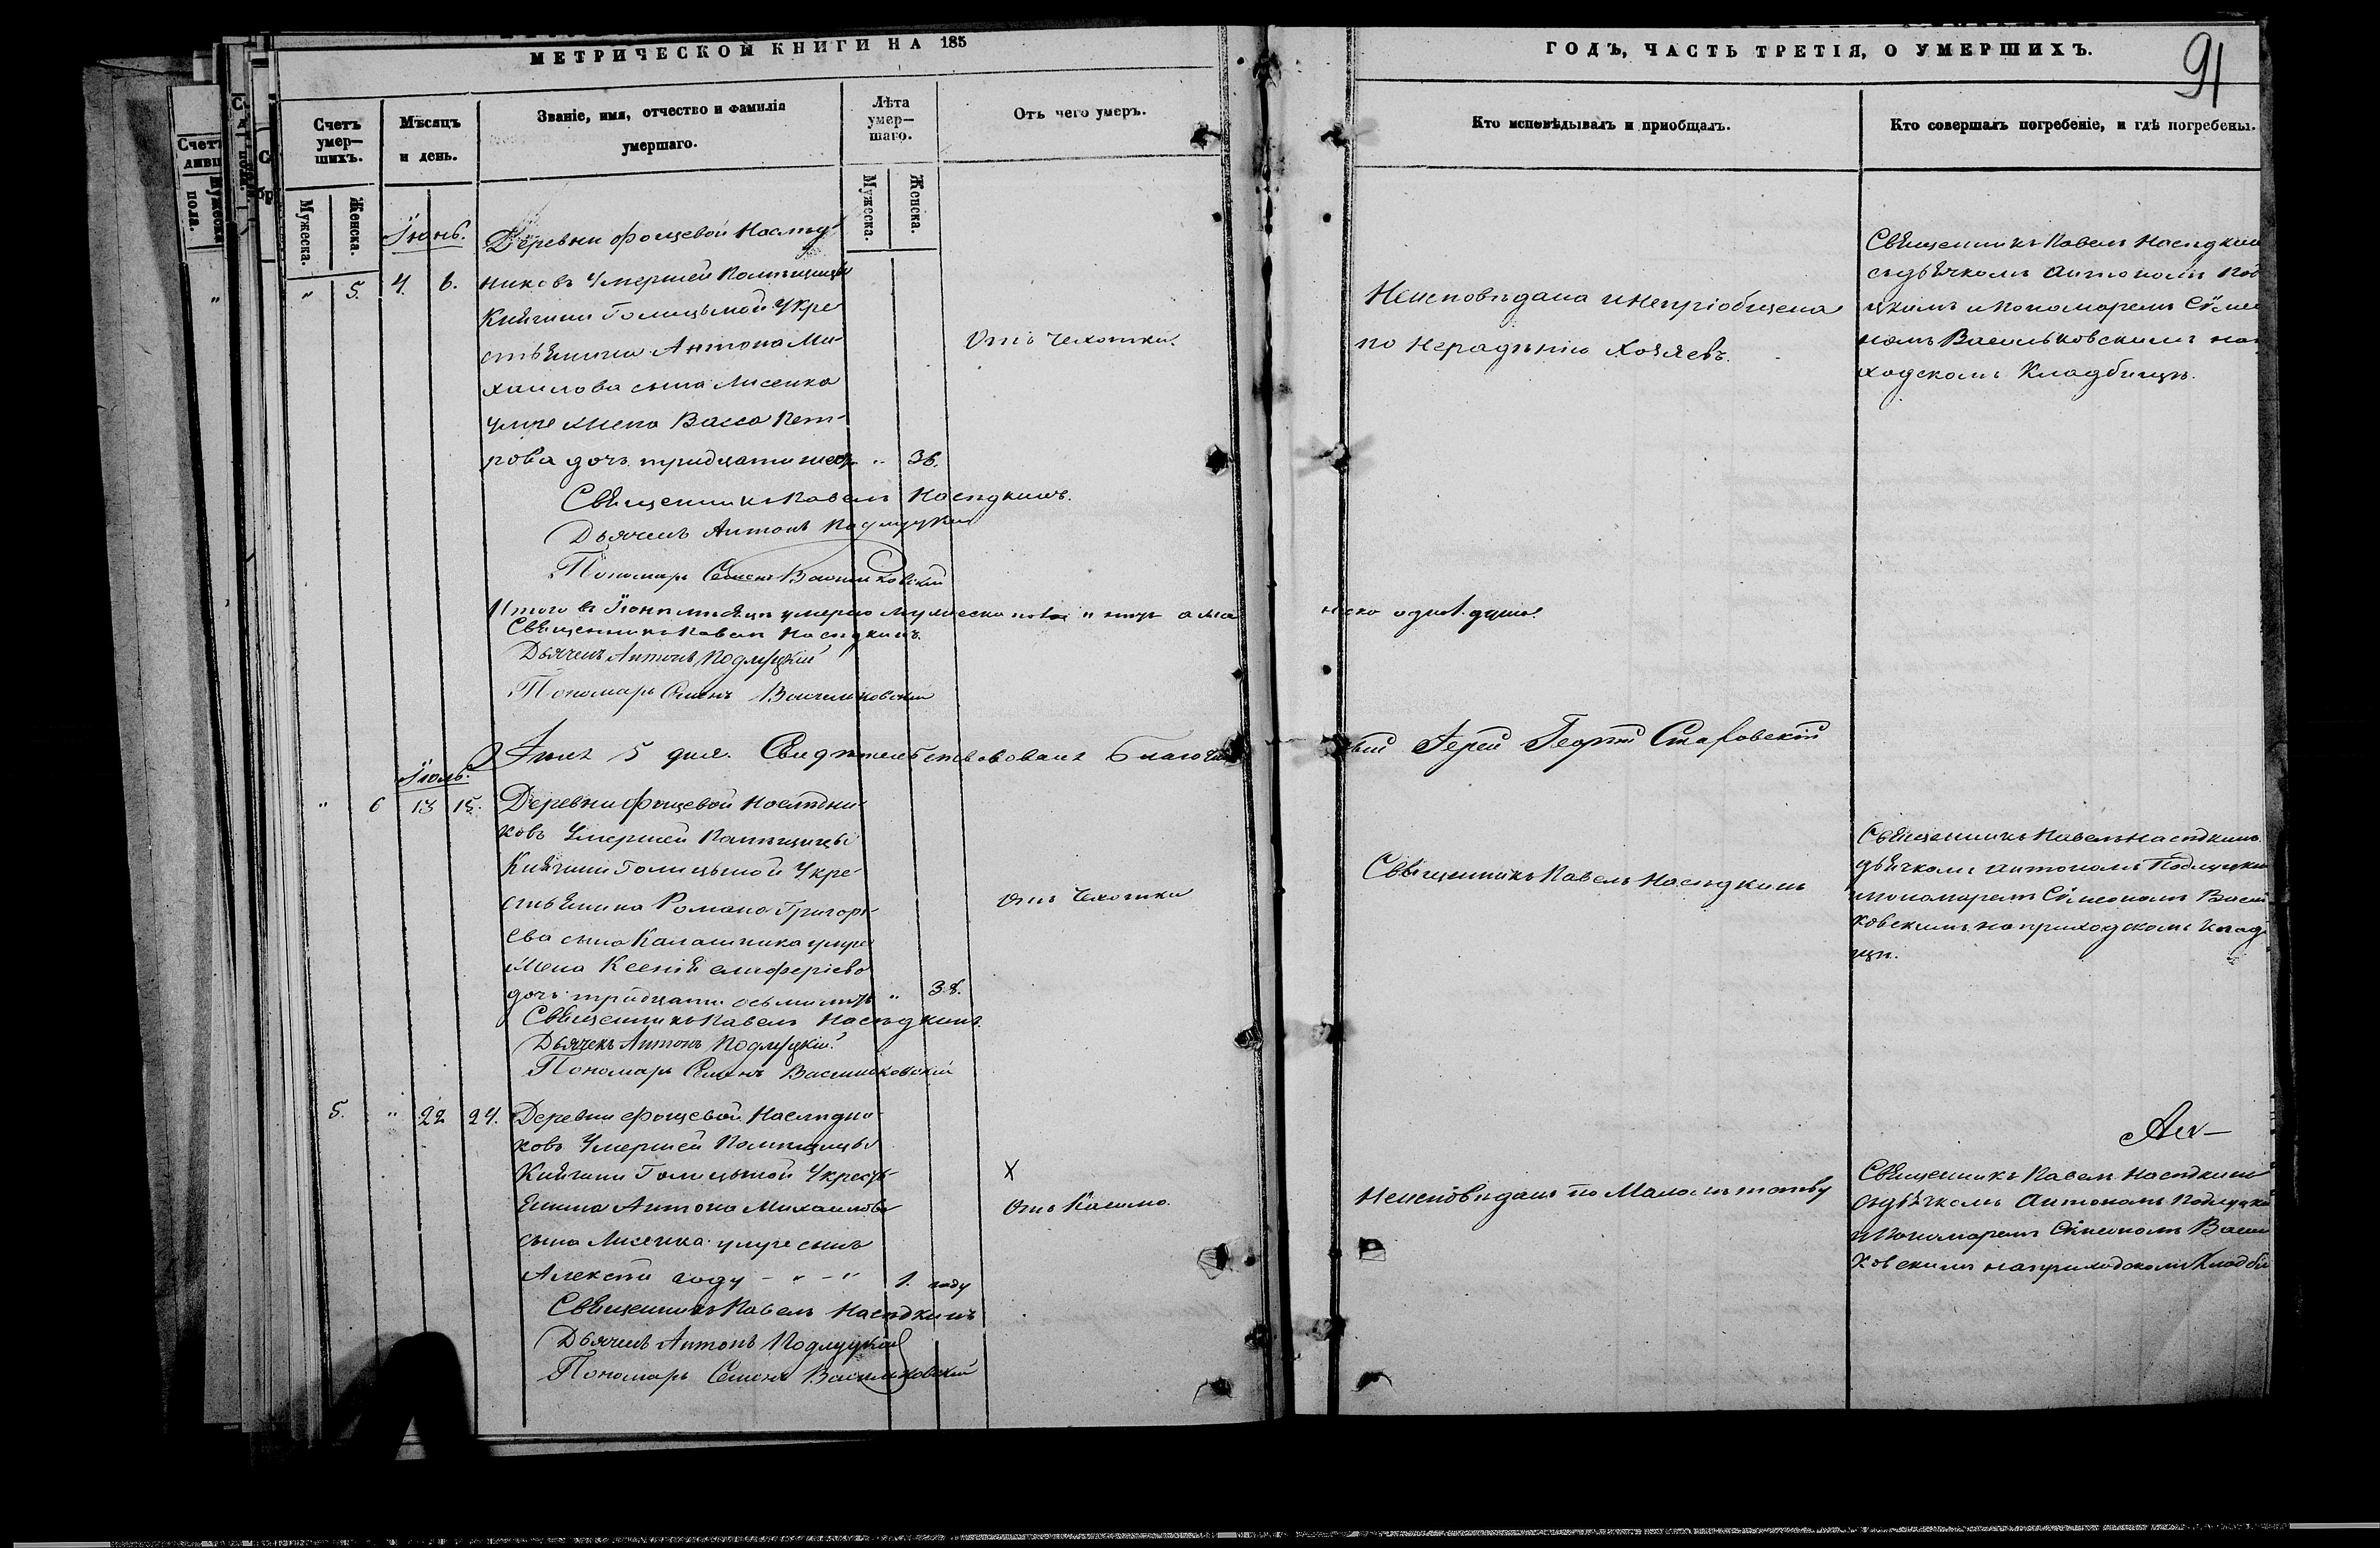 МЕТРИЧЕСКОЙ КНИГИ НА 185
ГОДЪ, ЧАСТЬ ТРЕТІЯ, О УМЕРШИХЪ.
91
Счетъ умер–шихъ.
Мужеска.
Женска.
Мѣсяцъ и день.
Званіе, имя, отчество и фамилія умершаго.
Лѣта умер–шаго.
Мужеска.
Женска.
Отъ чего умеръ.
Кто исповѣдывалъ и пріобщалъ.
Кто совершалъ погребеніе, и гдѣ погребены.
Іюнь.
" 5. 4. 6.
Деревни Фощевой Наслѣд
никовъ Умершей Помѣщицы
Княгини Голицыной Укре
стьянина Антона Ми-
хаилова сына Лисенка
умре жена Васса Пет-
рова дочь тридцати шесть " 36.
Отъ Чехотки.
Неисповѣдана инепріобщена
по нерадѣнію хозяевъ.
Священникъ Павелъ Насѣдкин
съдьячкомъ Антономъ Под
цкимъ и Пономаремъ Симе
номъ Васильковскимъ на
ходскомъ Кладбищѣ.
Священникъ Павелъ Насѣдкинъ.
Дьячекъ Антонъ Подлуцкій
Пономарь Семенъ Васильковскій
Итого въ Іюнѣ мѣсяцѣ умерло мужеска пола " нѣтъ а же
нско одна душа.
Священникъ Павелъ Насѣдкинъ.
Дьячекъ Антонъ Подлуцкій
Пономарь Семенъ Васильковскій
Іюля 5 дня. Свидѣтельствовалъ Благочин
ный Іерей Георгій
Іюль.
" 6 13 15.
Деревни Фощевой Наслѣдни-
ковъ Умершей Помѣщицы
Княгини Голицыной Укре-
стьянина Романа Григорь-
ева сына Калашника умре
жена Ксенія Елиферіева
дочь тридцати осьми лѣтъ " 38.
Отъ Чехотки
Священникъ Павелъ Насѣдкинъ
Священникъ Павелъ Насѣдкинъ
дьячкомъ Антономъ Подлуцки
ипономаремъ Симеономъ Васил
ковскимъ наприходскомъ клад
щѣ.
Священникъ Павелъ Насѣдкинъ.
Дьячекъ Антонъ Подлуцкій.
Пономарь Семенъ Васильковскій
5. " 22 24.
Деревни Фощевой Наслѣдни-
ковъ Умершей Помѣщицы
Княгини Голицыной Укресть-
янина Антона Михаилова
сына Лисенка умре сынъ
Алексѣй году - " - " 1. году
Х
Отъ Кашлю.
Неисповѣданъ по Малолѣтству
Священникъ Павелъ Насѣдкинъ
съдьячкомъ Антономъ Подлуцки
иПономаремъ Симеономъ Васил
ковскимъ наприходскомъ Кладби
Священникъ Павелъ Насѣдкинъ
Дьячекъ Антонъ Подлуцкій
Пономарь Семенъ Васильковскій